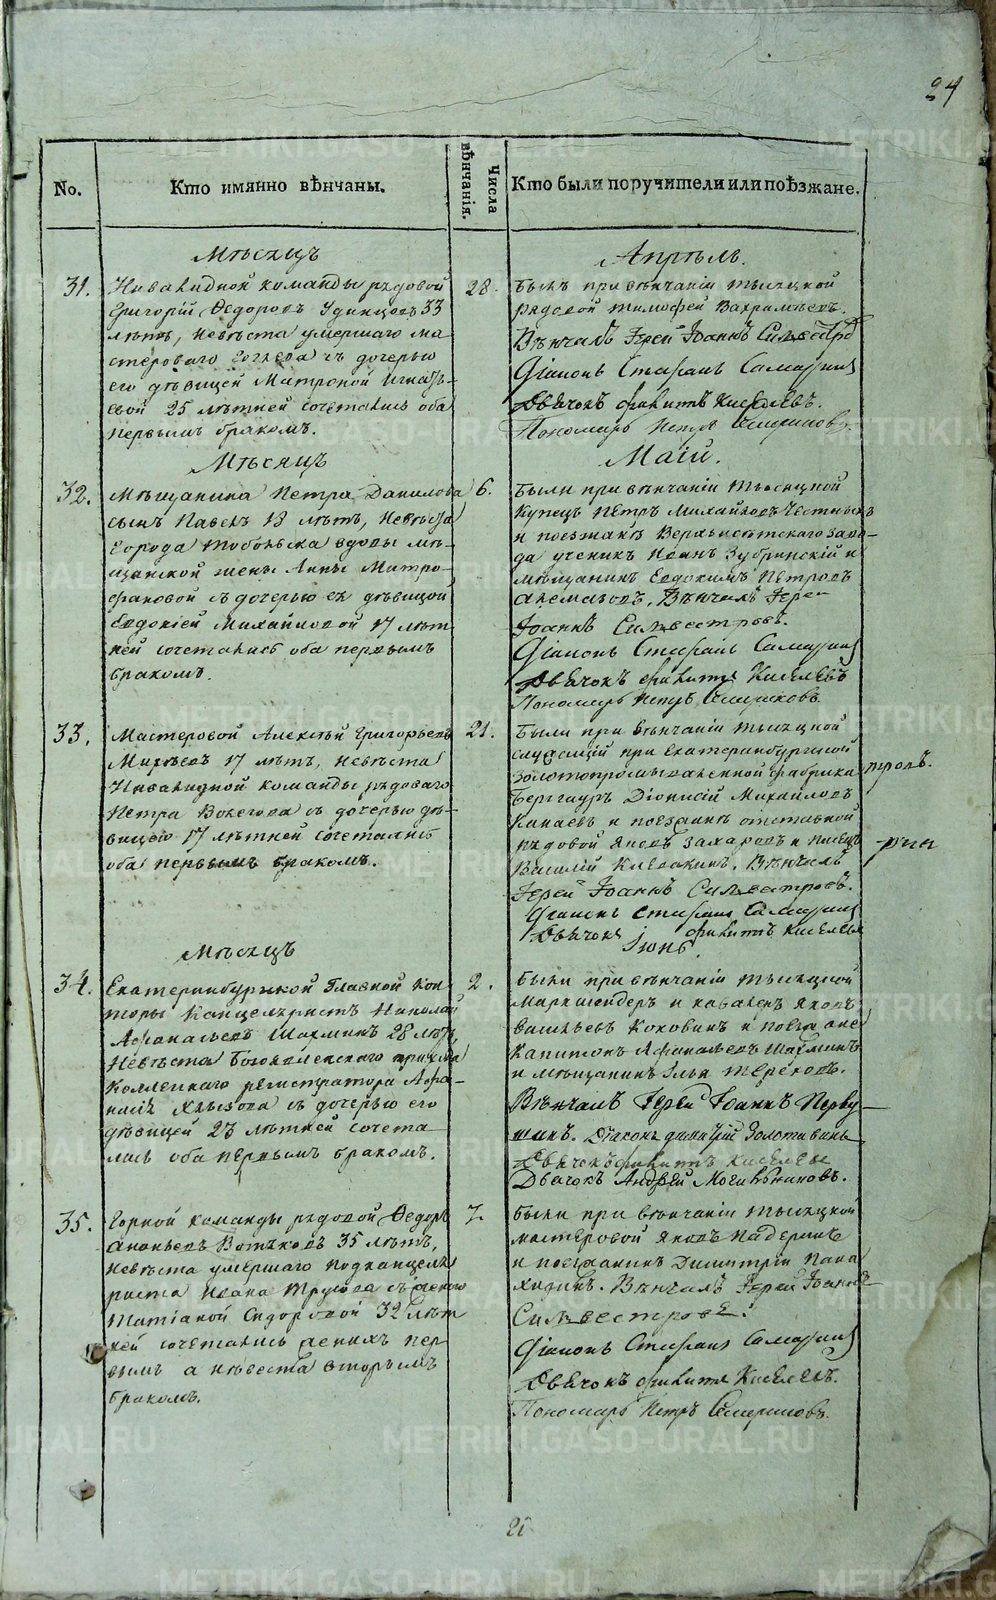 24
No.
Кто имянно вѣнчаны.
Числа вѣнчанія.
Кто были поручители или поѣзжане.
Мѣсяцъ
Апрѣль.
31.
Инвалидной команды рядовой
Григорій Ѳедоровъ Удинцовъ 33
лѣтъ, невѣста умершаго ма-
стероваго съ дочерью
его дѣвицей Матроной Игнать-
евой 25 лѣтней сочетались оба
первымъ бракомъ.
28.
Былъ при вѣнчаніи тысяцкой
рядовой Тимофей Вахрамѣевъ.
Вѣнчалъ Іерей Іоаннъ Сильвестровъ
Діаконъ Стефанъ Самаринъ
Дьячокъ Филитъ Киселевъ.
Пономарь Петръ
Мѣсяцъ
Маій.
32.
Мѣщанина Петра Данилова
сынъ Павелъ 18 лѣтъ, невѣста
города Тобольска вдовы мѣ-
щанской жены Анны Митро-
фановой съ дочерью ея дѣвицой
Евдокіей Михайловой 17 лѣт-
ней сочетались оба первымъ
бракомъ.
6.
Были при вѣнчаніи тысяцкой
купецъ Петръ Михайловъ
и поезжанѣ Верхъисетскаго заво-
да ученикъ Иванъ Зубринскій и
мѣщанинъ Евдокимъ Петровъ
Вѣнчалъ Іерей
Іоаннъ Сильвестровъ.
Діаконъ Стефанъ Самаринъ
Дьячокъ Филитъ Киселевъ
Пономарь Петръ
33.
Мастеровой Алексѣй Григорьевъ
17 лѣтъ, невѣста
Инвалидной команды рядоваго
Петра съ дочерью дѣ-
вицею 17 лѣтней сочетались
оба первымъ бракомъ.
21.
Были при вѣнчаніи тысяцкой
служащій при Екатеринбургской
золотопромывальной фабрикѣ
Берггауръ Діонисій Михайловъ
Канаевъ и поезжанѣ отставной
рядовой Яковъ Захаровъ и писецъ
Василій Вѣнчалъ
Іерей Іоаннъ Сильвестровъ.
Діаконъ Стефанъ Самаринъ
Дьячокъ Филитъ Киселевъ
Мѣсяцъ
Іюнь.
34.
Екатеринбуржской Главной Кон-
торы Канцеляристъ Николай
Афанасьевъ Шахминъ 28 лѣтъ,
невѣста Богоявленскаго прихода
Коллежскаго регистратора Афа-
насія съ дочерью его
дѣвицей 23 лѣтней сочета-
лись оба первымъ бракомъ.
2.
Были при вѣнчаніи тысяцкой
Маркшейдеръ и кавалеръ Яковъ
Васильевъ Коковинъ и поезжане
Капитонъ Афанасьевъ Шахминъ
и мѣщанинъ Илья Тереховъ.
Вѣнчалъ Іерей Іоаннъ Перву-
шинъ. Діаконъ Димитрій Золотавинъ
Дьячокъ Филитъ Киселевъ
Дьячокъ Андрей Могильниковъ.
35.
Горной команды рядовой Ѳедоръ
Ананьевъ Вотяковъ 35 лѣтъ,
невѣста умершаго подканцеля-
риста Ивана Трусова съ женою
Татіаной Сидоровой 32 лѣт-
ней сочетались женихъ пер-
вымъ а невѣста вторымъ
бракомъ.
7.
Были при вѣнчаніи тысяцкой
мастеровой Яковъ Падеринъ
и поезжанинъ Димитрій Пана-
хидинъ. Вѣнчалъ Іерей Іоаннъ
Сильвестровъ.
Діаконъ Стефанъ Самаринъ
Дьячокъ Филитъ Киселевъ.
Пономарь Петръ
METRIKI.GASO-URAL.RU